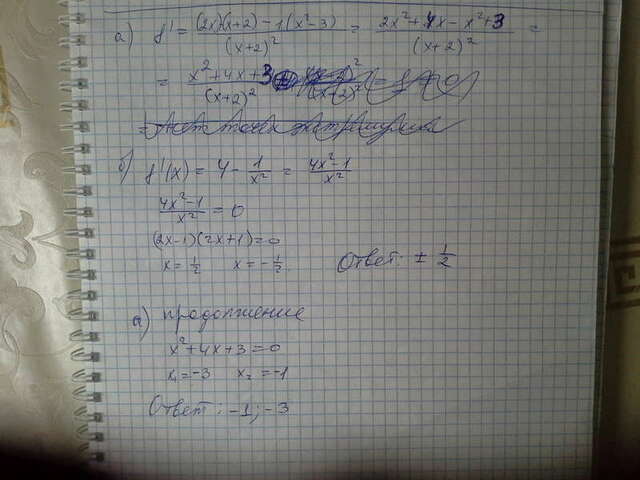 а) f' = (2x)(x+2) - 1(x²-3) / (x+2)² = 2x²+4x-x²+3 / (x+2)² =
= x²+4x+3 / (x+2)²
б) f'(x) = 4 - 1/x² = 4x²-1 / x²
4x²-1 / x² = 0
(2x-1)(2x+1)=0
x = 1/2 x = -1/2
Ответ: ± 1/2
а) продолжение
x²+4x+3=0
x₁=-3 x₂=-1
Ответ: -1; -3